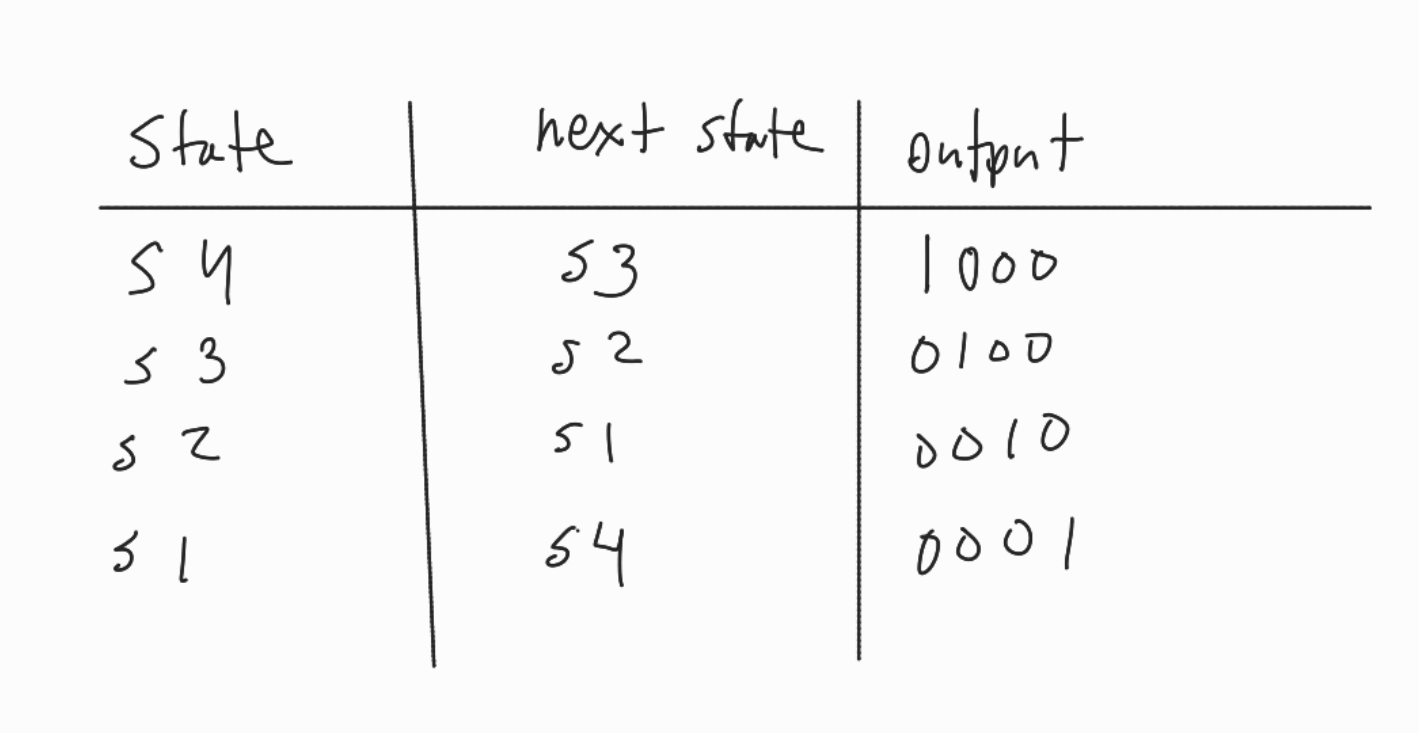 State next state output
S4 S3 1000
S3 S2 0100
S2 S1 0010
S1 S4 0001